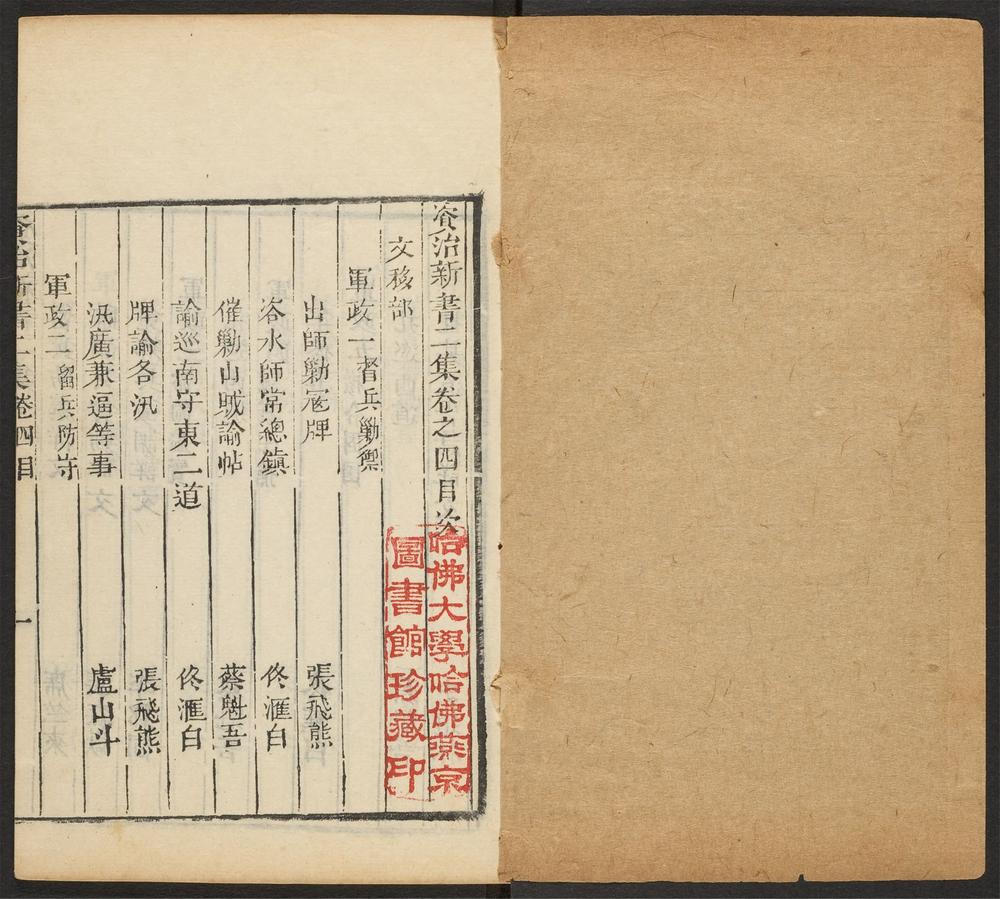 資治新書二集卷之四目次
文移部
軍政一督兵勦禦
出師勦寇牌 張飛熊
咨水師常總鎮 佟滙白
催勦山賊諭帖 蔡魁吾
諭巡南守東二道 佟滙白
牌諭各汛 張飛熊
汛廣兼逼等事 盧山斗
軍政二留兵防守
資治新書二集卷四目 一
哈佛大學哈佛燕京
圖書館珍藏印